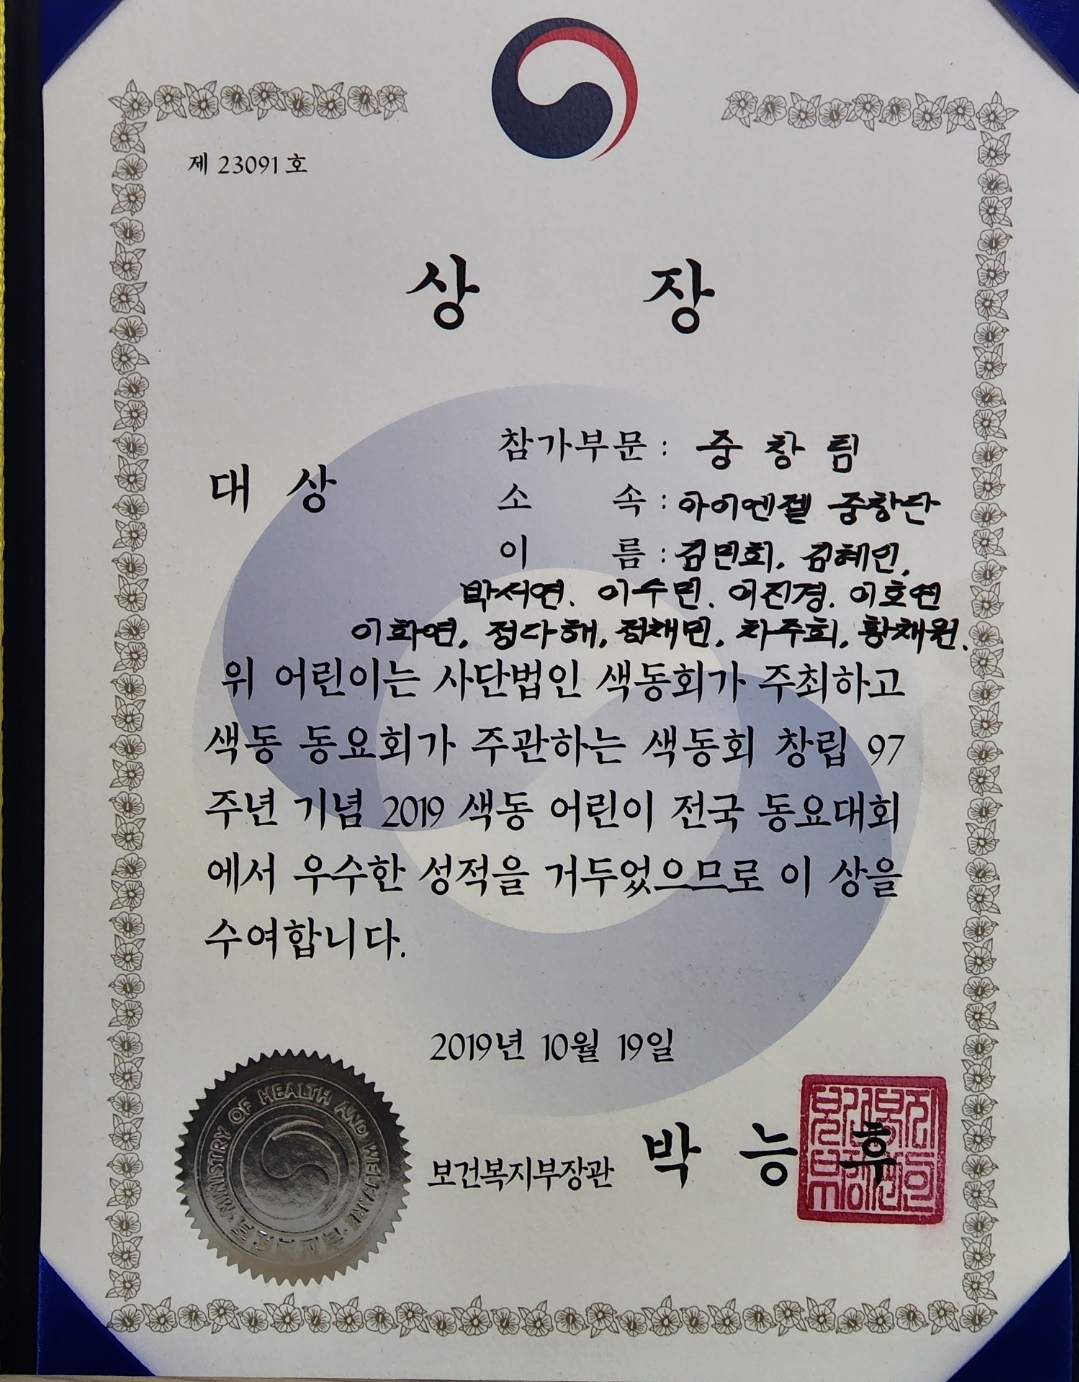 제 23091 호
상 장
대 상
참가부문 : 중 창 팀
소 속 : 아이엔젤 중창단
이 름 : 김민희, 김혜인,
박서연. 이수민. 어진경. 이호연
이화연, 정다혜, 정채민, 차주희, 황채원.
위 어린이는 사단법인 색동회가 주최하고
색동 동요회가 주관하는 색동회 창립 97
주년 기념 2019 색동 어린이 전국 동요대회
에서 우수한 성적을 거두었으므로 이 상을
수여합니다.
2019년 10월 19일
보건복지부장관 박 능 후
MINISTRY OF HEALTH AND WELFARE